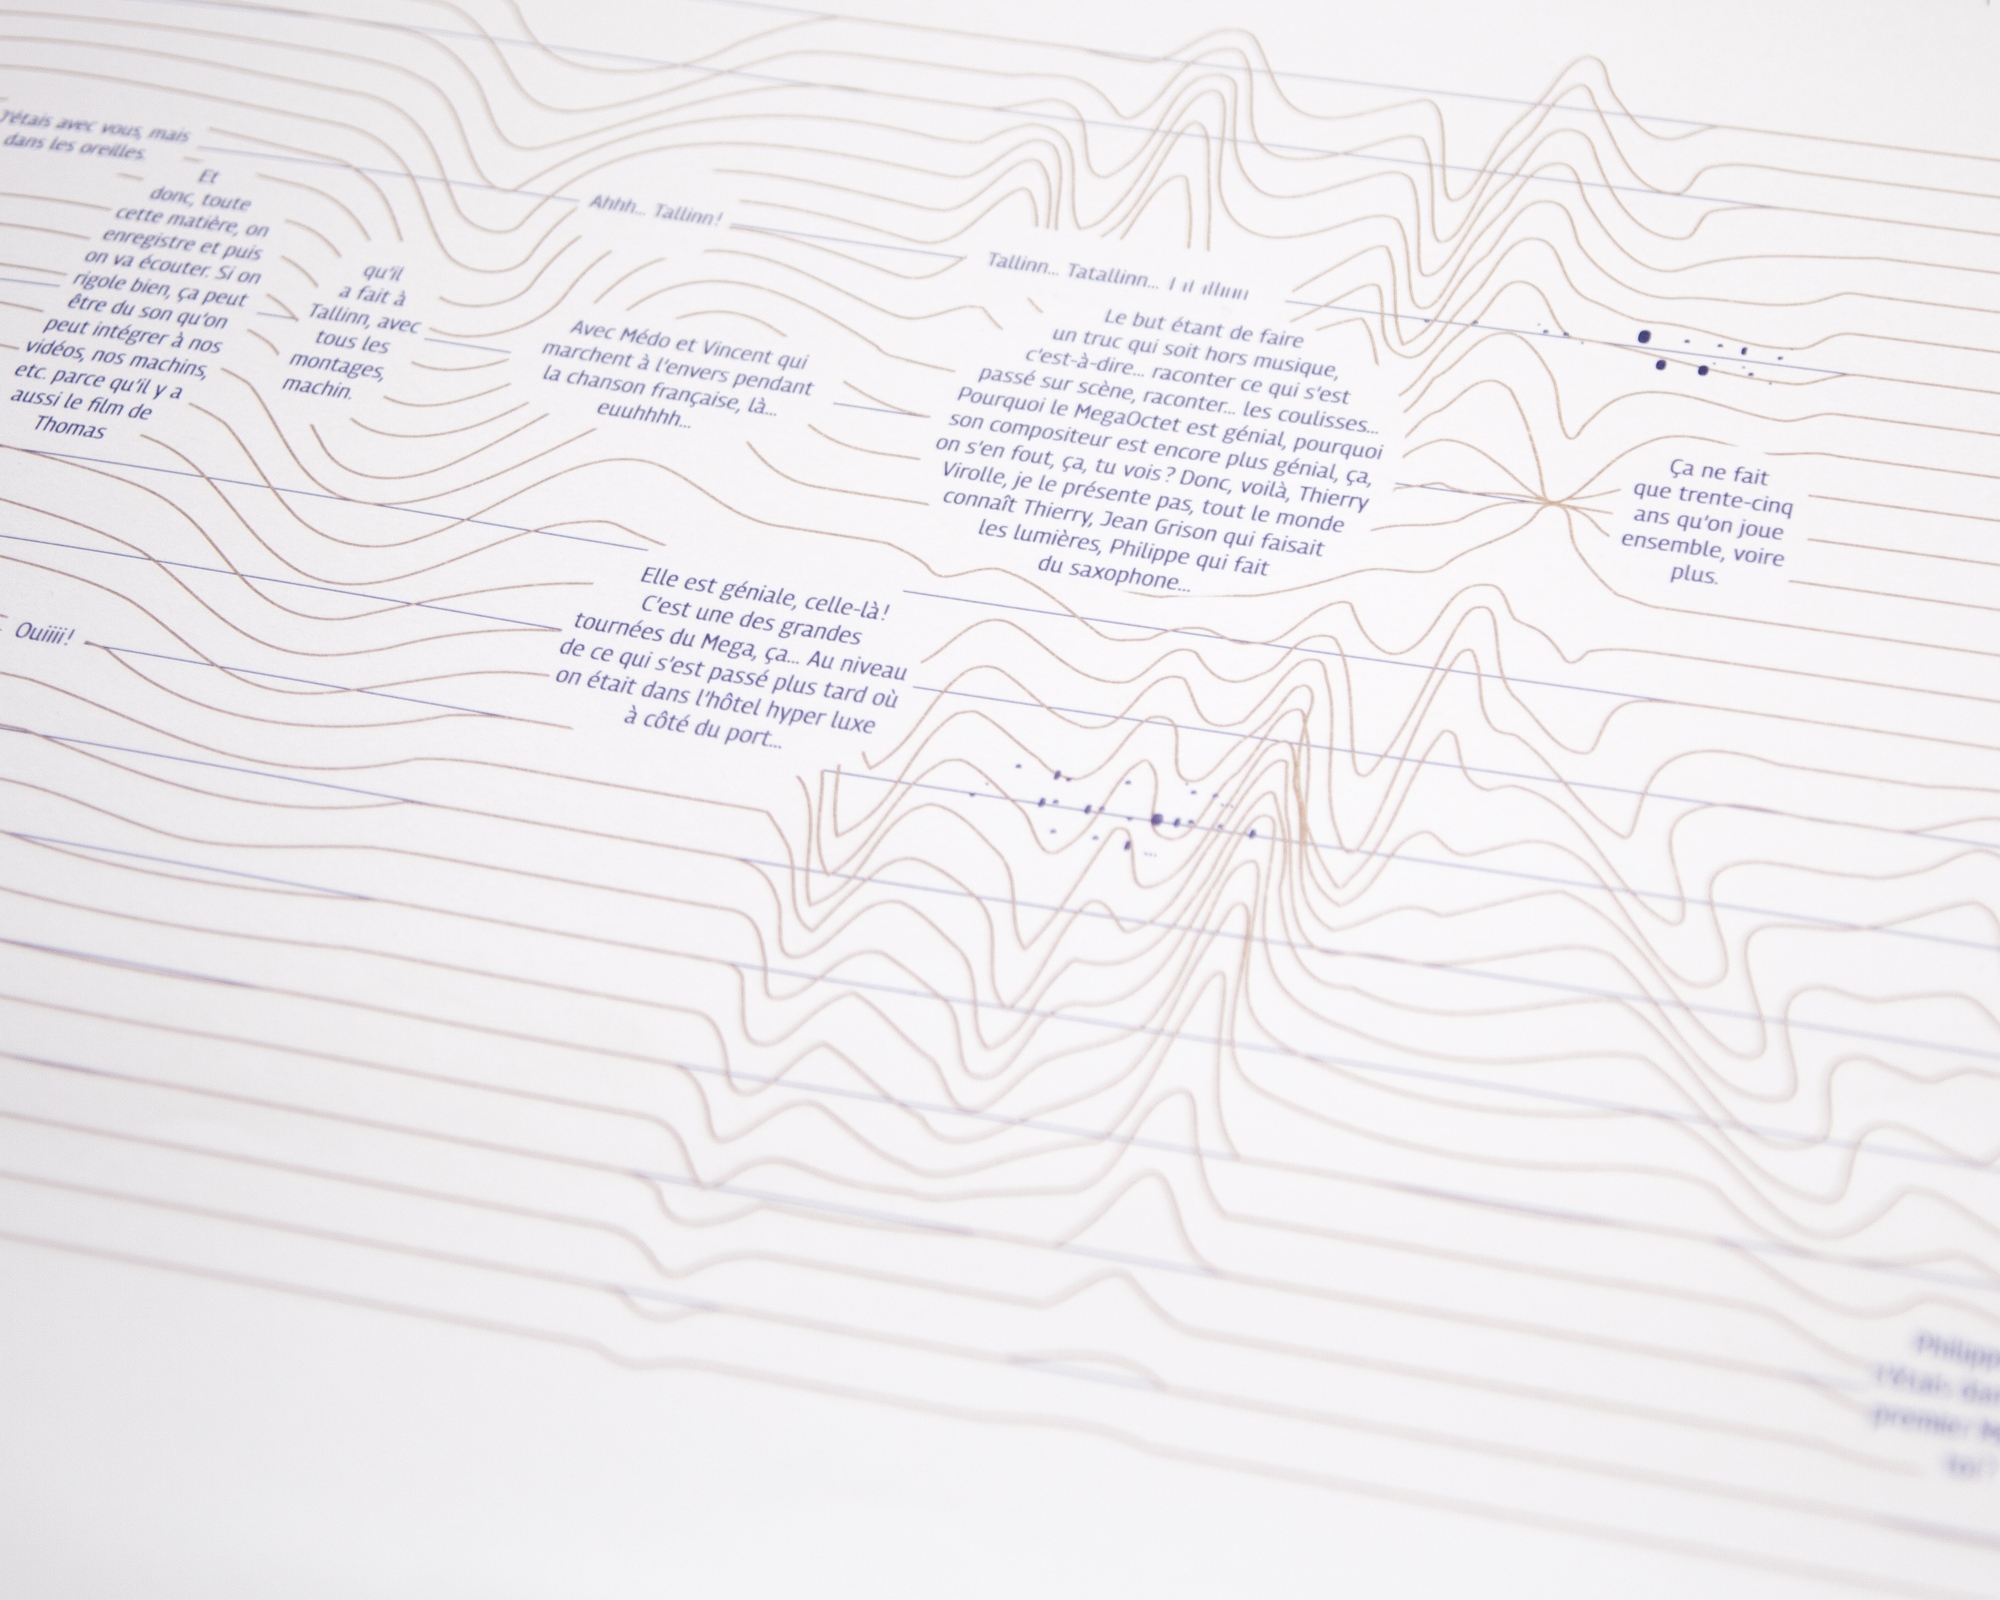 J'étais avec vous, mais
dans les oreilles.
Et
donc, toute
cette matière, on
enregistre et puis
on va écouter. Si on
rigole bien, ça peut
être du son qu'on
peut intégrer à nos
vidéos, nos machins,
etc. parce qu'il y a
aussi le film de
Thomas
qu'il
a fait à
Tallinn, avec
tous les
montages,
machin.
Ouiiii!
Ahhh... Tallinn!
Avec Médo et Vincent qui
marchent à l'envers pendant
la chanson française, là...
euuhhhh...
Elle est géniale, celle-là!
C'est une des grandes
tournées du Mega, ça... Au niveau
de ce qui s'est passé plus tard où
on était dans l'hôtel hyper luxe
à côté du port...
Tallinn... Tatallinn...
Le but étant de faire
un truc qui soit hors musique,
c'est-à-dire... raconter ce qui s'est
passé sur scène, raconter... les coulisses...
Pourquoi le MegaOctet est génial, pourquoi
son compositeur est encore plus génial, ça,
on s'en fout, ça, tu vois? Donc, voilà, Thierry
Virolle, je le présente pas, tout le monde
connaît Thierry, Jean Grison qui faisait
les lumières, Philippe qui fait
du saxophone...
Ça ne fait
que trente-cinq
ans qu'on joue
ensemble, voire
plus.
premier